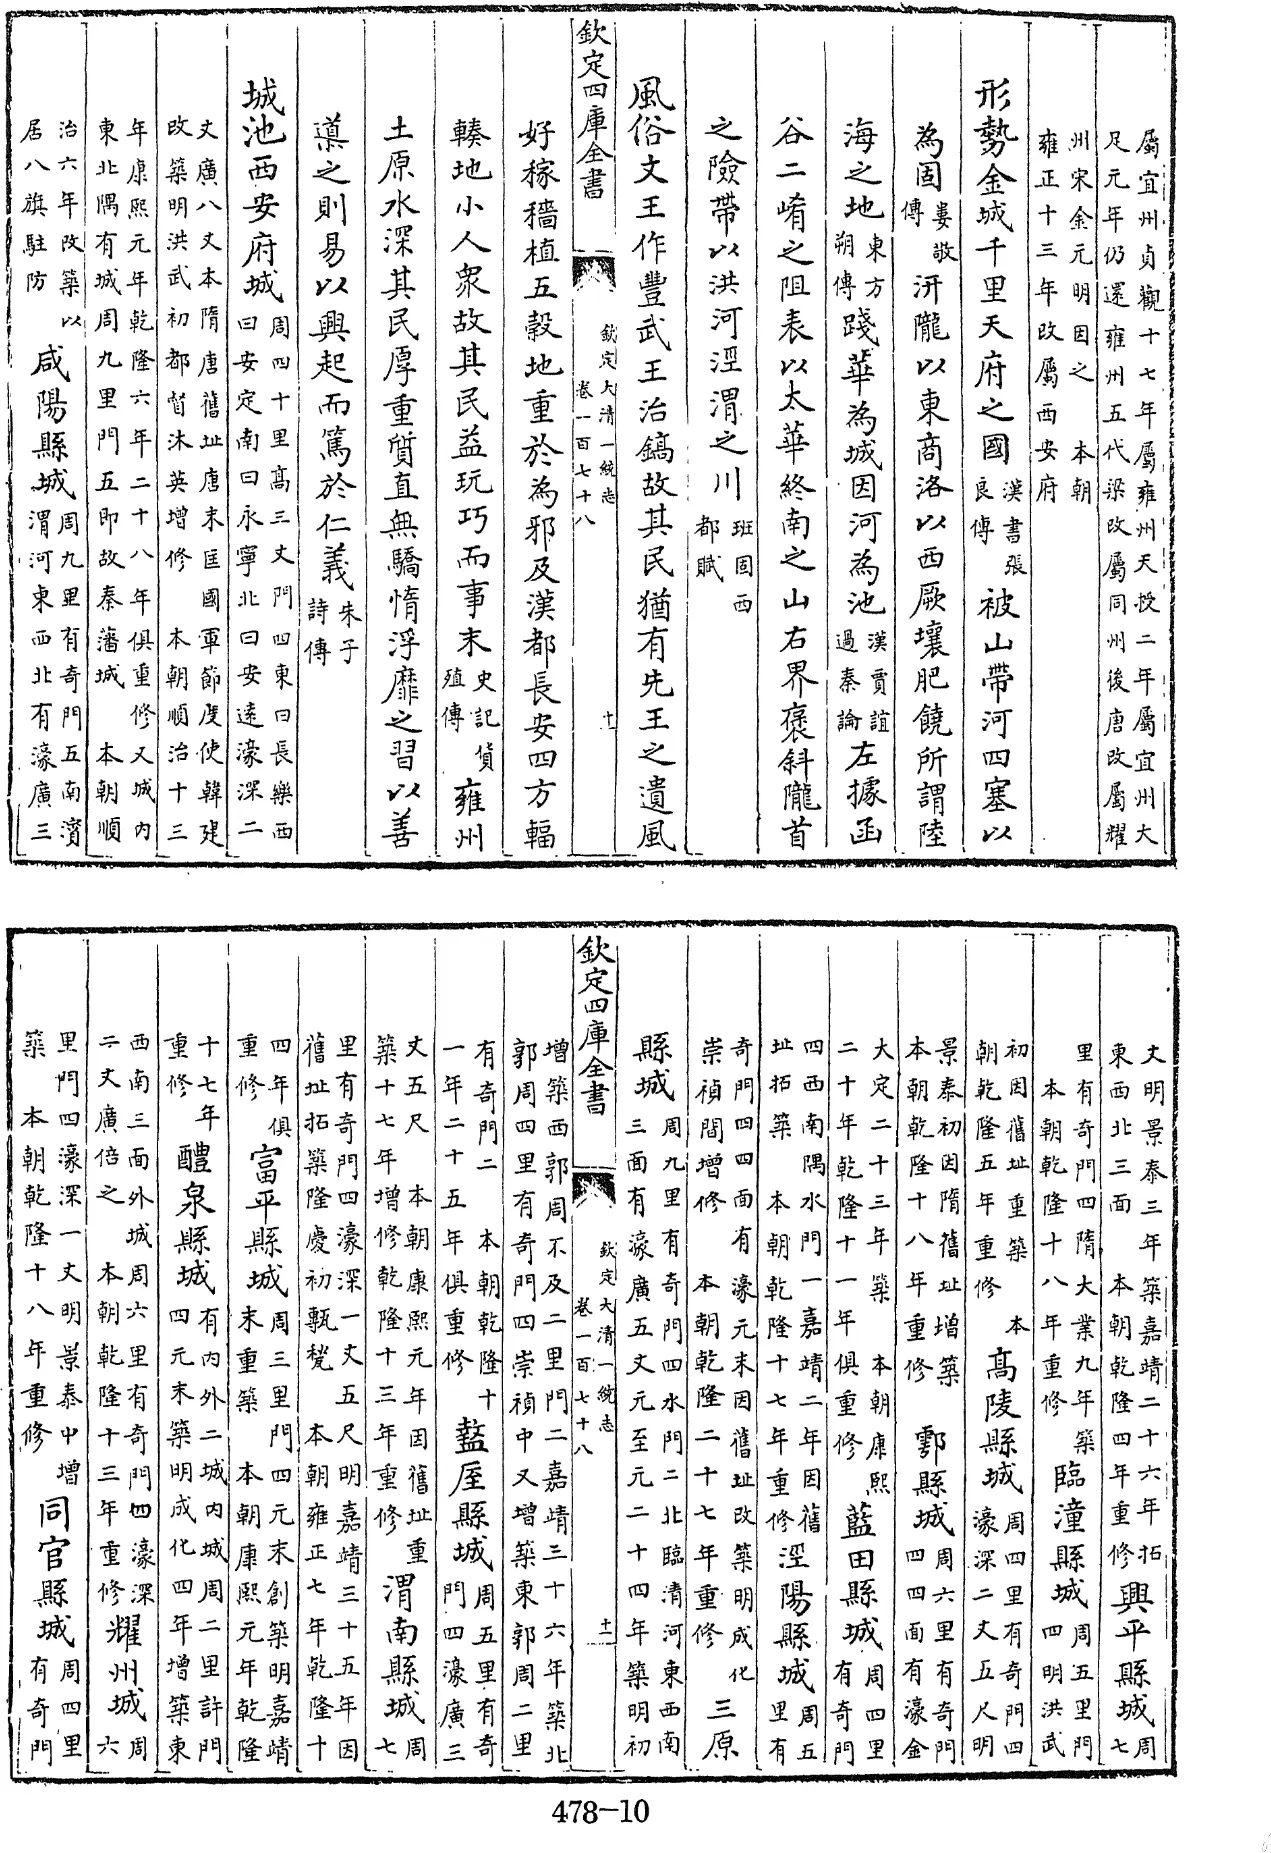 屬宜州貞觀十七年屬雍州天授二年屬宜州大
足元年仍還雍州五代梁改屬同州後唐改屬耀
州宋金元明因之 本朝
雍正十三年改屬西安府
形勢金城千里天府之國漢書張良傳被山帶河四塞以
為固婁敬傳汧隴以東商洛以西厥壤肥饒所謂陸
海之地東方朔傳踐華為城因河為池漢賈誼過秦論左據函
谷二崤之阻表以太華終南之山右界褒斜隴首
之險帶以洪河涇渭之川班固西都賦
風俗文王作豐武王治鎬故其民猶有先王之遺風
欽定四庫全書 欽定大清一統志 卷一百七十八 十
好稼穡植五穀地重於為邪及漢都長安四方輻
輳地小人衆故其民益玩巧而事末史記貨殖傳雍州
土原水深其民厚重質直無驕惰浮靡之習以善
導之則易以興起而篤於仁義朱子詩傳
城池西安府城周四十里高三丈門四東曰長樂西曰安定南曰永寧北曰安遠濠深二
丈廣八丈本隋唐舊址唐末匡國軍節度使韓建改築明洪武初都督沐英增修 本朝順治十三
年康熙元年乾隆六年二十八年俱重修又城内東北隅有城周九里門五即故秦藩城 本朝順
治六年改築以居八旗駐防咸陽縣城周九里有奇門五南濱渭河東西北有濠廣三
丈明景泰三年築嘉靖二十六年拓東西北三面 本朝乾隆四年重修興平縣城周七
里有奇門四隋大業九年築 本朝乾隆十八年重修臨潼縣城周五里門四明洪武
初因舊址重築 本朝乾隆五年重修高陵縣城周四里有奇門四濠深二丈五尺明
景泰初因隋舊址增築 本朝乾隆十八年重修鄠縣城周六里有奇門四四面有濠金
大定二十三年築 本朝康熙二十年乾隆十一年俱重修藍田縣城周四里有奇門
四西南隅水門一嘉靖二年因舊址拓築 本朝乾隆十七年重修涇陽縣城周五里有
奇門四四面有濠元末因舊址改築明成化崇禎間增修 本朝乾隆二十七年重修三原
縣城周九里有奇門四水門二北臨清河東西南三面有濠廣五丈元至元二十四年築明初
欽定四庫全書 欽定大清一統志 卷一百七十八 十一
增築西郭周不及二里門二嘉靖三十六年築北郭周四里有奇門四崇禎中又增築東郭周二里
有奇門二 本朝乾隆十一年二十五年俱重修盩厔縣城周五里有奇門四濠廣三
丈五尺 本朝康熙元年因舊址重築十七年增修乾隆十三年重修渭南縣城周七
里有奇門四濠深一丈五尺明嘉靖三十五年因舊址拓築隆慶初甃甓 本朝雍正七年乾隆十
四年俱重修富平縣城周三里門四元末創築明嘉靖末重築 本朝康熙元年乾隆
十七年重修醴泉縣城有内外二城内城周二里許門四元末築明成化四年增築東
西南三面外城周六里有奇門四濠深二丈廣倍之 本朝乾隆十三年重修耀州城周六
里門四濠深一丈明景泰中增築 本朝乾隆十八年重修同官縣城周四里有奇門
478-10